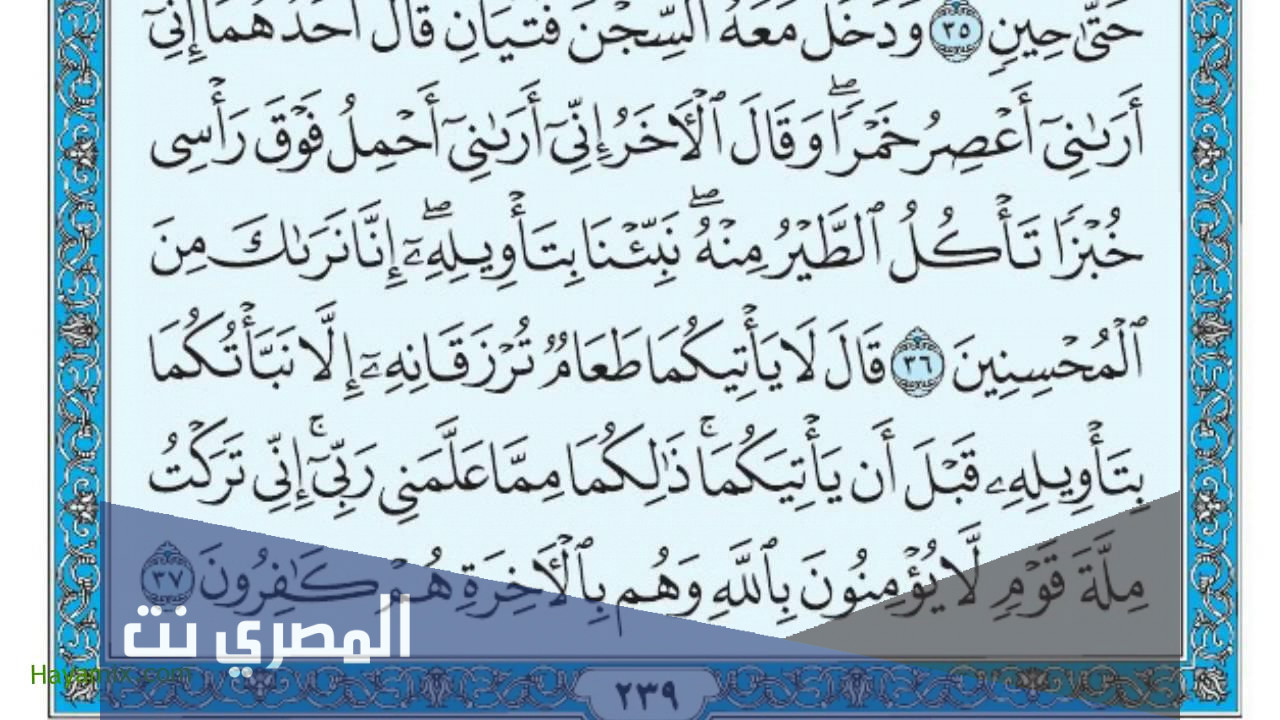 حَتَّىٰ حِينٍ ٣٥ وَدَخَلَ مَعَهُ ٱلسِّجْنَ فَتَيَانِ قَالَ أَحَدُهُمَآ إِنِّىٓ
أَرَىٰنِىٓ أَعْصِرُ خَمْرًاۖ وَقَالَ ٱلْأَخَرُ إِنِّىٓ أَرَىٰنِىٓ أَحْمِلُ فَوْقَ رَأْسِى
خُبْزًا تَأْكُلُ ٱلطَّيْرُ مِنْهُۖ نَبِّئْنَا بِتَأْوِيلِهِۦٓۖ إِنَّا نَرَىٰكَ مِنَ
ٱلْمُحْسِنِينَ ٣٦ قَالَ لَا يَأْتِيكُمَا طَعَامٌ تُرْزَقَانِهِۦٓ إِلَّا نَبَّأْتُكُمَا
بِتَأْوِيلِهِۦ قَبْلَ أَن يَأْتِيَكُمَاۚ ذَٰلِكُمَا مِمَّا عَلَّمَنِى رَبِّىٓۚ إِنِّى تَرَكْتُ
مِلَّةَ قَوْمٍ لَّا يُؤْمِنُونَ بِٱللَّهِ وَهُم بِٱلْأَخِرَةِ هُمْ كَٰفِرُونَ ٣٧
المصري نت
٢٣٩